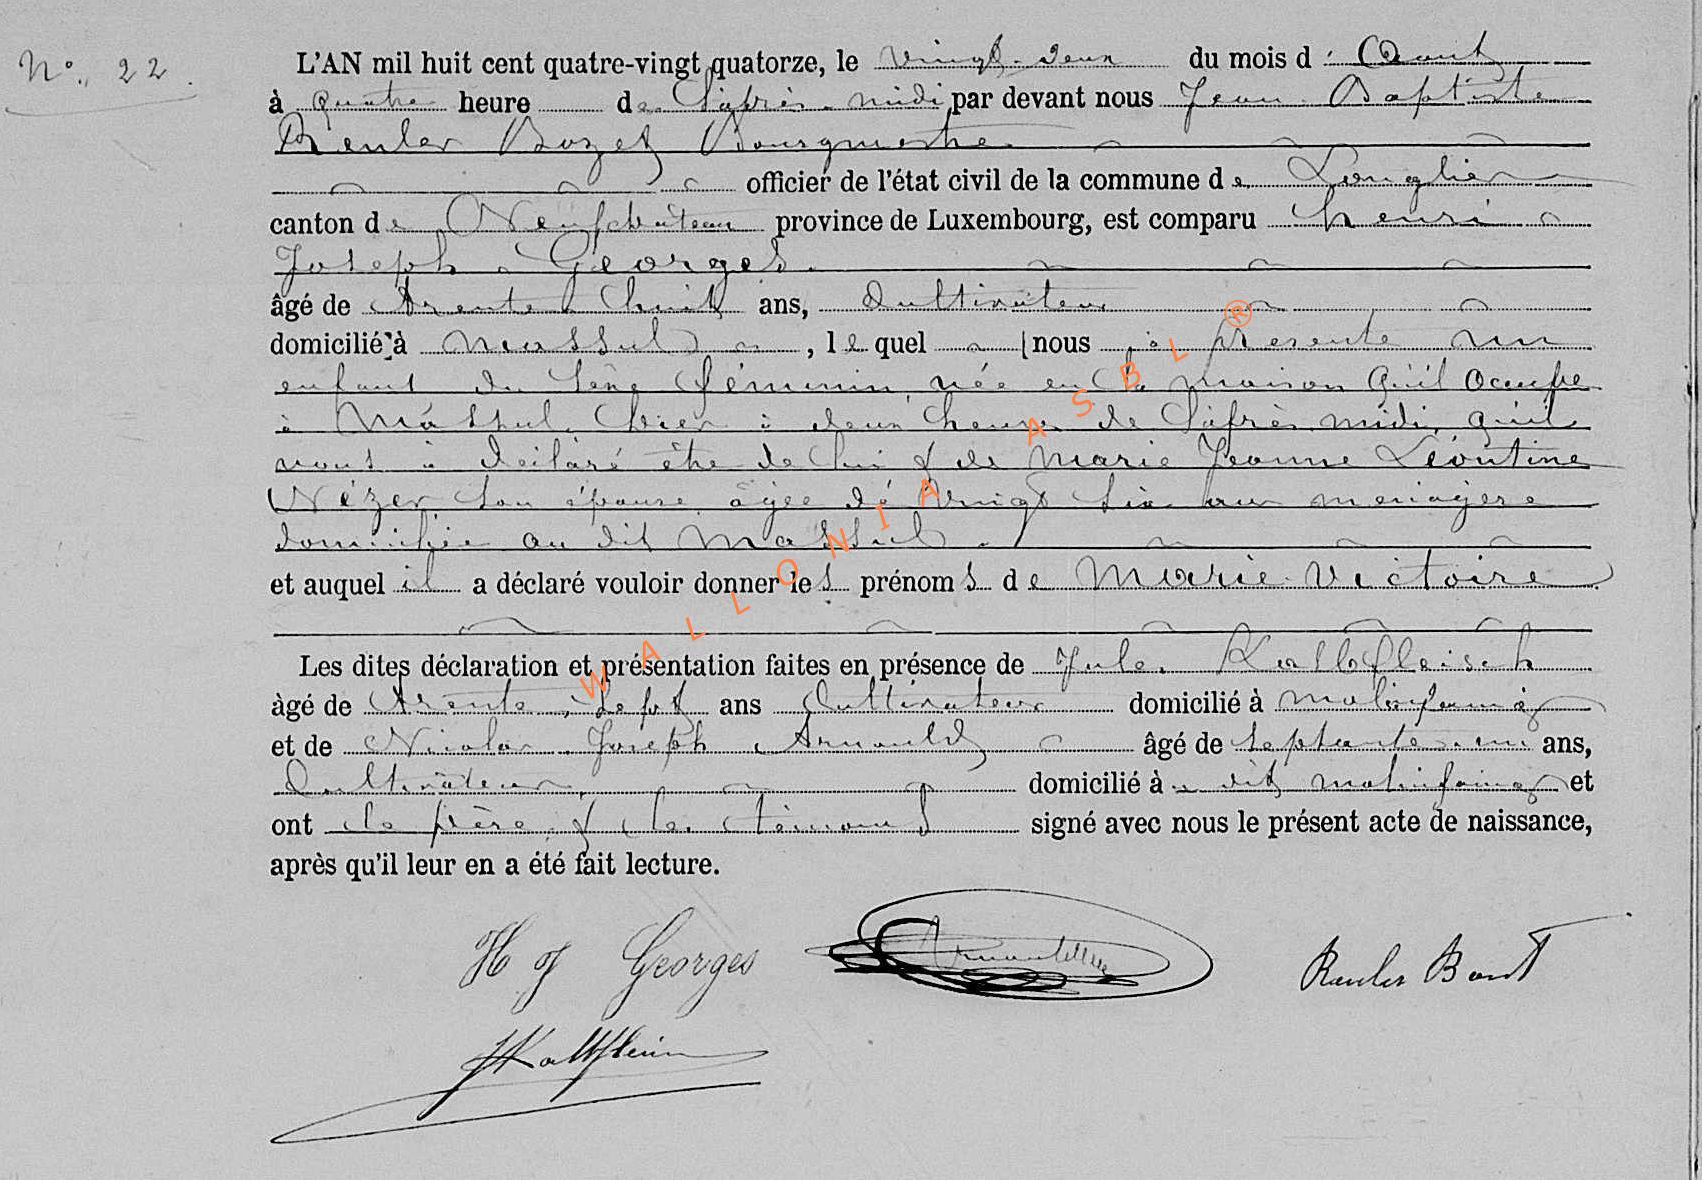 N° 22
L'AN mil huit cent quatre-vingt quatorze, le vingt-deux du mois d'Aout
à quatre heure de l'après-midi par devant nous Jean Baptiste
Reuler Bourgmestre
officier de l'état civil de la commune de Longlier
canton de Neufchâteau province de Luxembourg, est comparu henri
Joseph Georges
âgé de trente huit ans, Cultivateur
domicilié à Massul, le quel nous à présenté un
enfant du sexe féminin née en la maison qu'il occupe
à Massul hier à deux heures de l'après midi, qu'il
nous à déclaré être de lui & de Marie Jeanne Léontine
Nézer son épouse âgée de vingt six ans menagère
domiciliée au dit Massul.
et auquel il a déclaré vouloir donner les prénoms de Marie Victoire
Les dites déclaration et présentation faites en présence de Jules Kalbfleisch
âgé de trente-sept ans Cultivateur domicilié à molinfaing
et de Nicolas Joseph Arnould âgé de septante-un ans,
Cultivateur domicilié à dit molinfaing et
ont le père & les témoins signé avec nous le présent acte de naissance,
après qu'il leur en a été fait lecture.
H J Georges
Reuler
WALLONIA ASBL ®